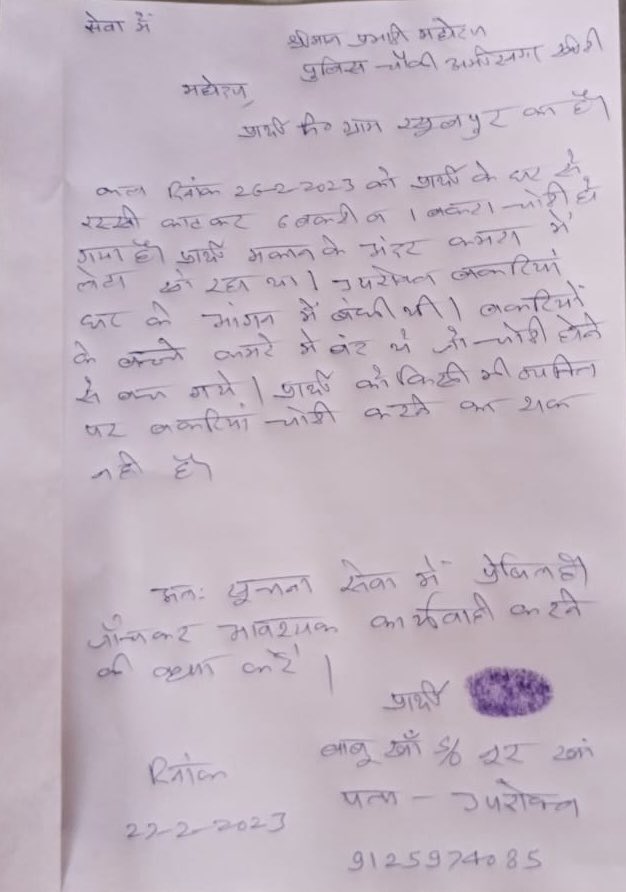 सेवा में
श्रीमान प्रभारी महोदय
पुलिस चौकी अमीरनगर खीरी
महोदय,
प्रार्थी नि० ग्राम रसूलपुर का है।
कल दिनांक 26-2-2023 को प्रार्थी के घर से
रस्सी काटकर 6 बकरी व 1 बकरा चोरी हो
गया है। प्रार्थी मकान के अंदर कमरा में
लेटा सो रहा था। उपरोक्त बकरियां
घर के आंगन में बंधी थी। बकरियों
के बच्चे कमरे में बंद थे जो चोरी होने
से बच गये। प्रार्थी को किसी भी व्यक्ति
पर बकरियां चोरी करने का शक
नही है।
अतः सूचना सेवा में प्रेषित है।
जाँचकर आवश्यक कार्यवाही करने
की कृपा करें।
प्रार्थी
बाबू खाँ S/o खां
पता - उपरोक्त
9125974085
दिनांक
27-2-2023